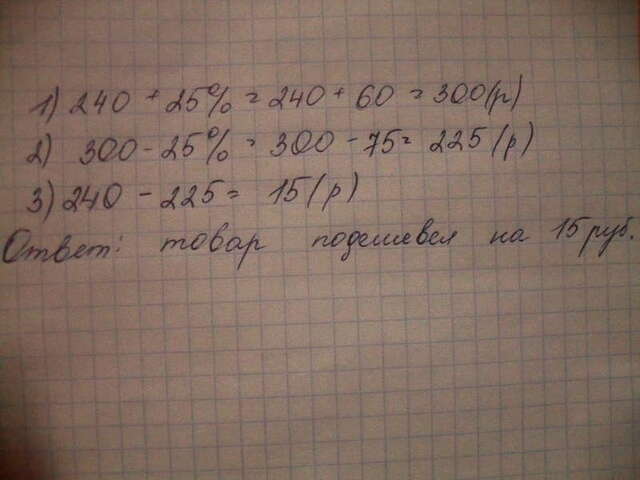 1) 240 + 25% = 240 + 60 = 300(р)
2) 300 - 25% = 300 - 75 = 225(р)
3) 240 - 225 = 15(р)
Ответ: товар подешевел на 15 руб.